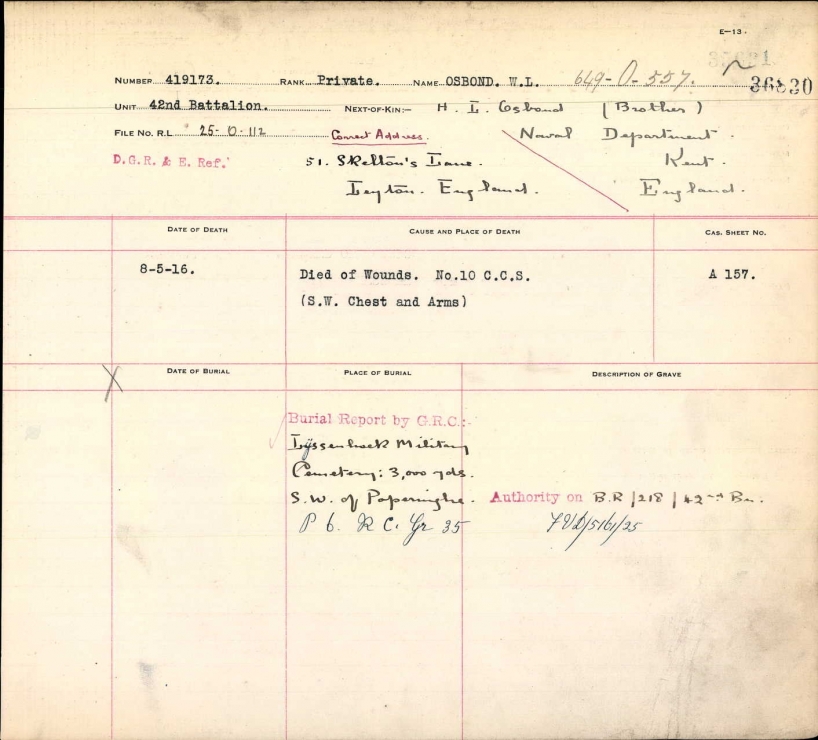 E-13.
35681
NUMBER 419173. RANK Private. NAME OSBOND. W.L. 649-O-557. 36830
UNIT 42nd Battalion. NEXT-OF-KIN:- H. L. Osbond (Brother)
FILE No. R.L 25-O-112 Correct Address. Naval Department.
D.G.R. & E. Ref. 51. Skelton's Lane. Kent.
Leyton. England. England.
DATE OF DEATH CAUSE AND PLACE OF DEATH CAS. SHEET NO.
8-5-16. Died of Wounds. No.10 C.C.S. A 157.
(S.W. Chest and Arms)
DATE OF BURIAL PLACE OF BURIAL DESCRIPTION OF GRAVE
Burial Report by G.R.C.:-
Lijssenhoek Military
Cemetery: 3,000 yds.
S.W. of Poperinghe. Authority on B.R/218/42nd Bn.
P 6. R C. Gr 35